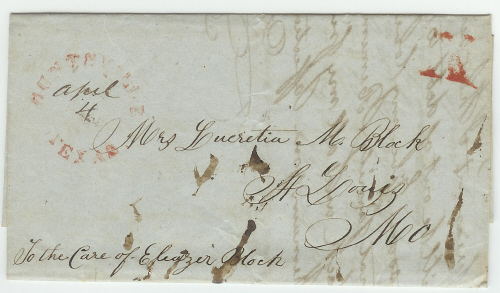 HUNTSVILLE
TEXAS
April
4
Mrs Lucretia M. Block
St Louis
Mo
To the Care of Eleazer Block